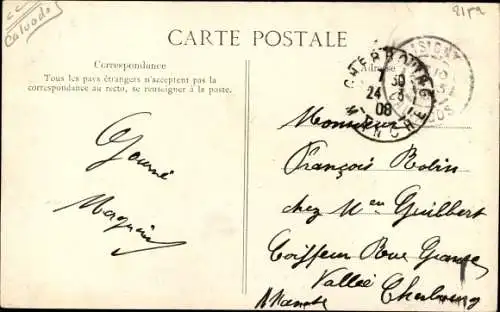 Calvados
CARTE POSTALE
Correspondance
Tous les pays étrangers n'acceptent pas la
correspondance au recto, se renseigner à la poste.
Adresse
CHERBOURG
7 30
24 3
08
MANCHE
ISIGNY
Monsieur
François Robin
chez Mr Guilbert
Coiffeur Rue Grande
Vallée Cherbourg
Manche